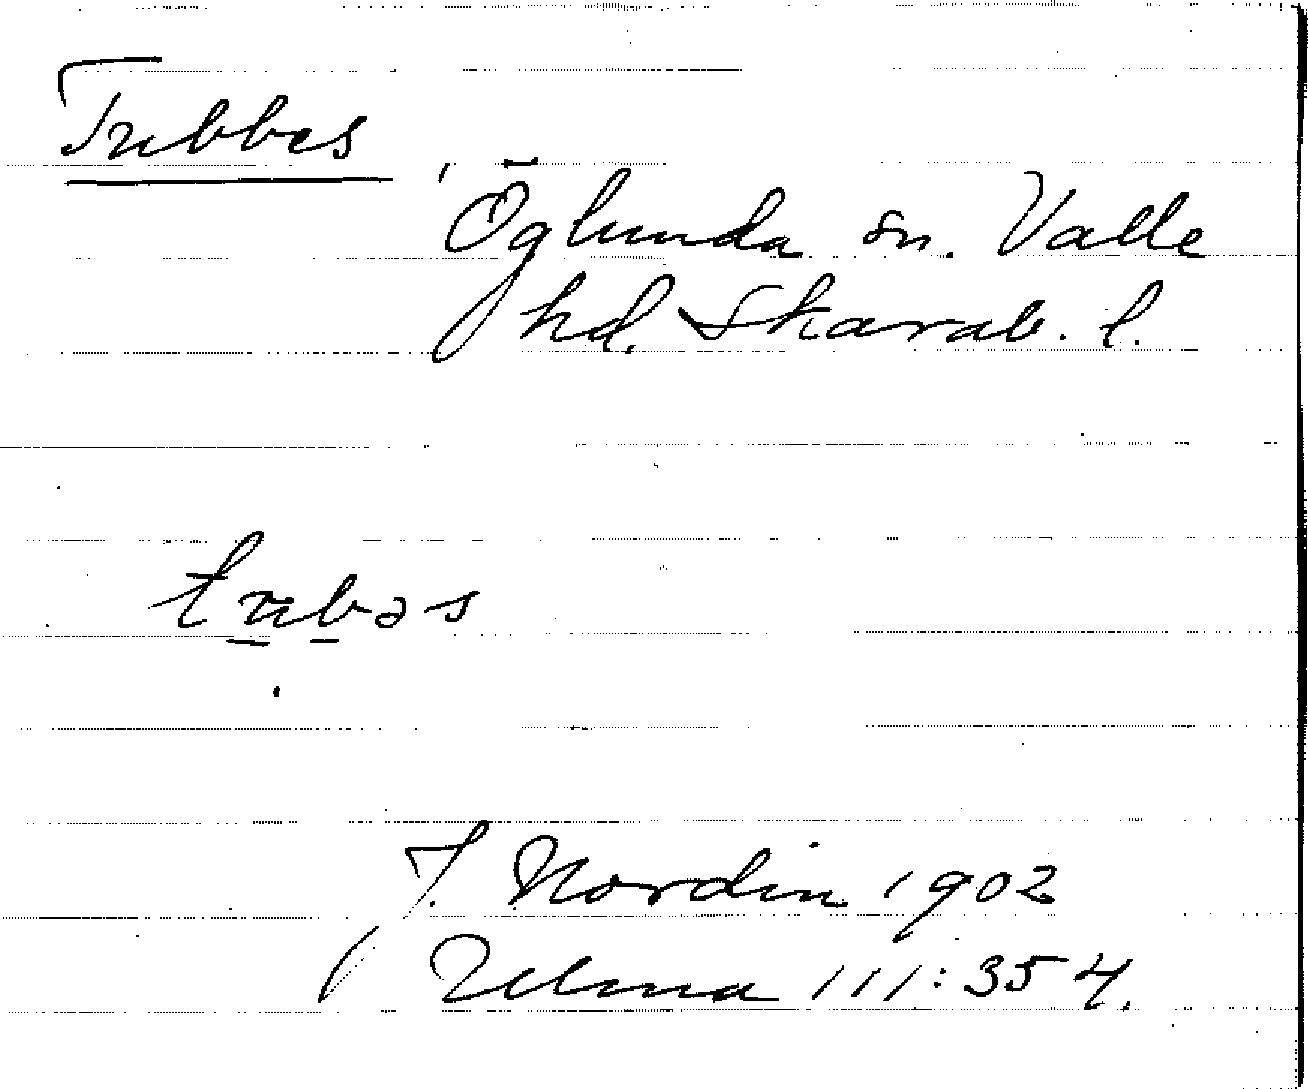 Trubbes
Öglunda sn. Valle
hd. Skarab. l.
trubəs
J. Nordin 1902
Ulma 111:354.